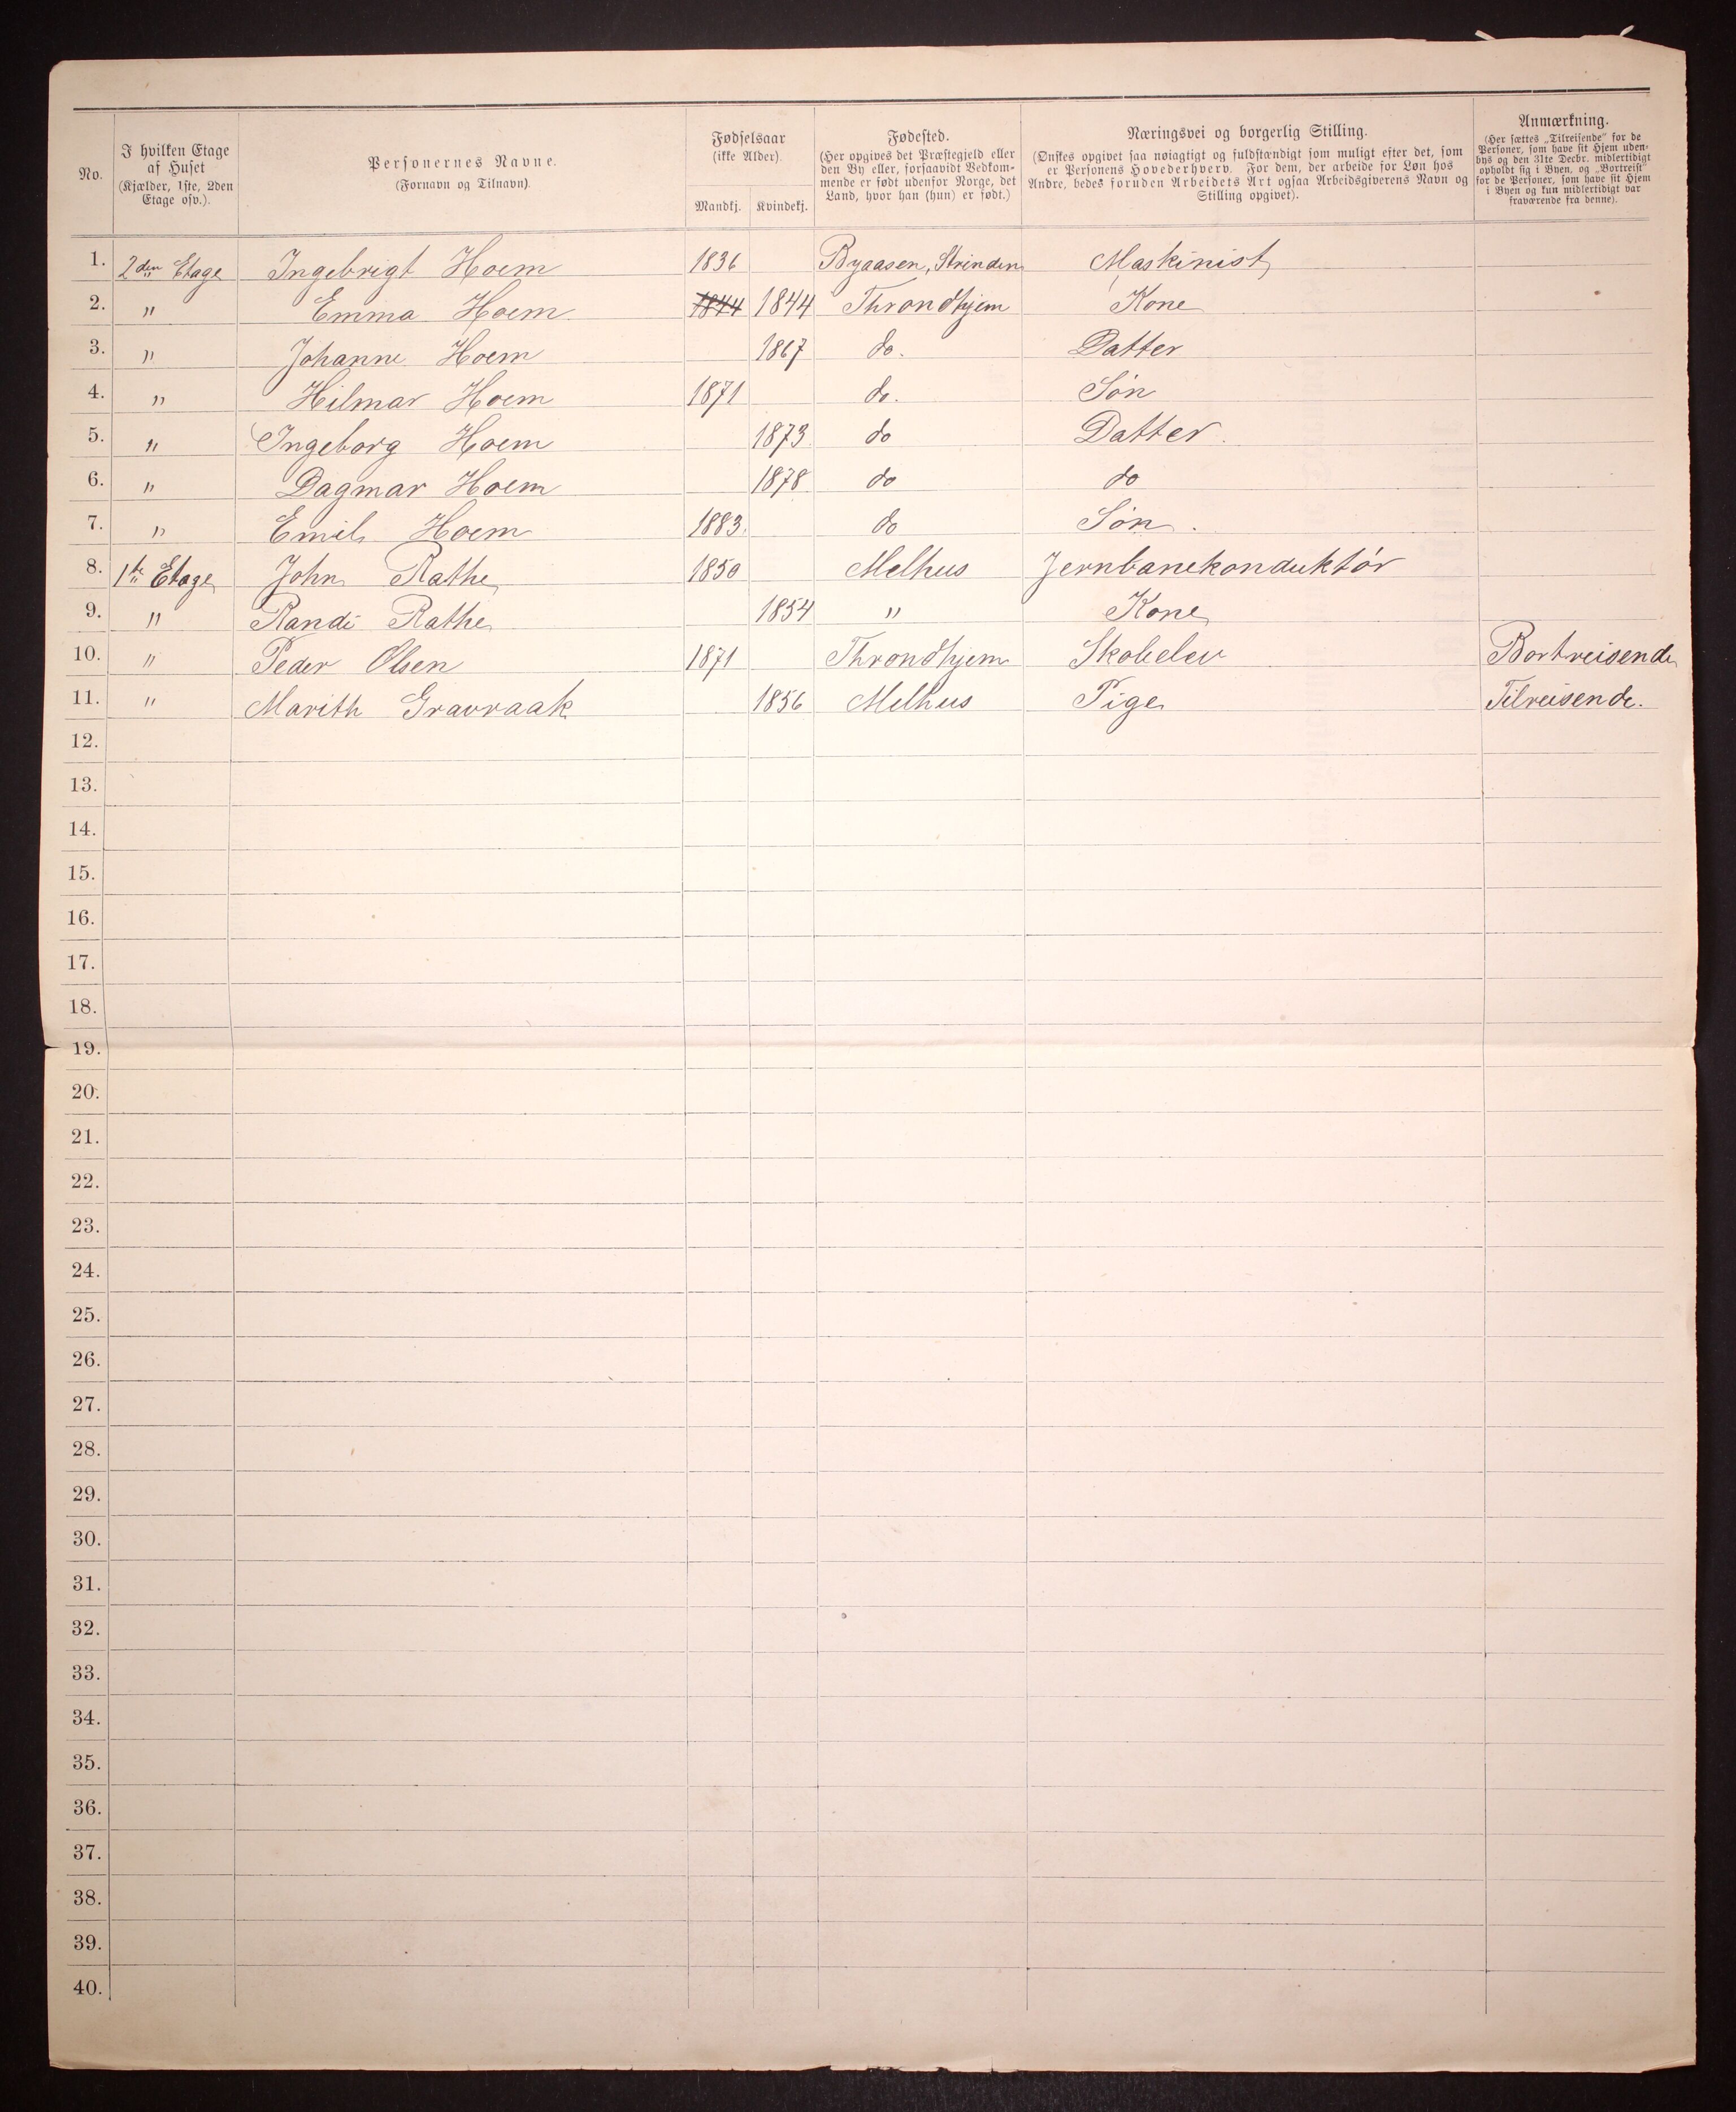 No.
I hvilken Etage
af Huset
(Kjælder, 1ste, 2den
Etage osv.).
Personernes Navne.
(Fornavn og Tilnavn).
Fødselsaar
(ikke Alder).
Mandkj. Kvindekj.
Fødested.
(Her opgives det Præstegjeld eller
den By eller, forsaavidt Vedkom-
mende er født udenfor Norge, det
Land, hvor han (hun) er født.)
Næringsvei og borgerlig Stilling.
(Ønskes opgivet saa nøiagtigt og fuldstændigt som muligt efter det, som
er Personens Hovederhverv. For dem, der arbeide for Løn hos
Andre, bedes foruden Arbeidets Art ogsaa Arbeidsgiverens Navn og
Stilling opgivet).
Anmærkning.
(Her sættes „Tilreisende" for de
Personer, som have sit Hjem uden-
bys og den 31te Decbr. midlertidigt
opholdt sig i Byen, og „Bortreist"
for de Personer, som have sit Hjem
i Byen og kun midlertidigt var
fraværende fra denne).
1. 2den Etage Ingebrigt Hoem 1836 Byaasen, Strinden Maskinist
2. " Emma Hoem 1844 1844 Throndhjem Kone
3. " Johanne Hoem 1867 do. Datter
4. " Hilmar Hoem 1871 do. Søn
5. " Ingeborg Hoem 1873 do Datter.
6. " Dagmar Hoem 1878 do do
7. " Emil Hoem 1883. do Søn.
8. 1te Etage John Rathe 1850 Melhus Jernbanekonduktør
9. " Randi Rathe 1854 " Kone
10. " Peder Olsen 1871 Throndhjem Skoleelev Bortreisende
11. " Marith Gravraak 1856 Melhus Pige Tilreisende.
12.
13.
14.
15.
16.
17.
18.
19.
20.
21.
22.
23.
24.
25.
26.
27.
28.
29.
30.
31.
32.
33.
34.
35.
36.
37.
38.
39.
40.